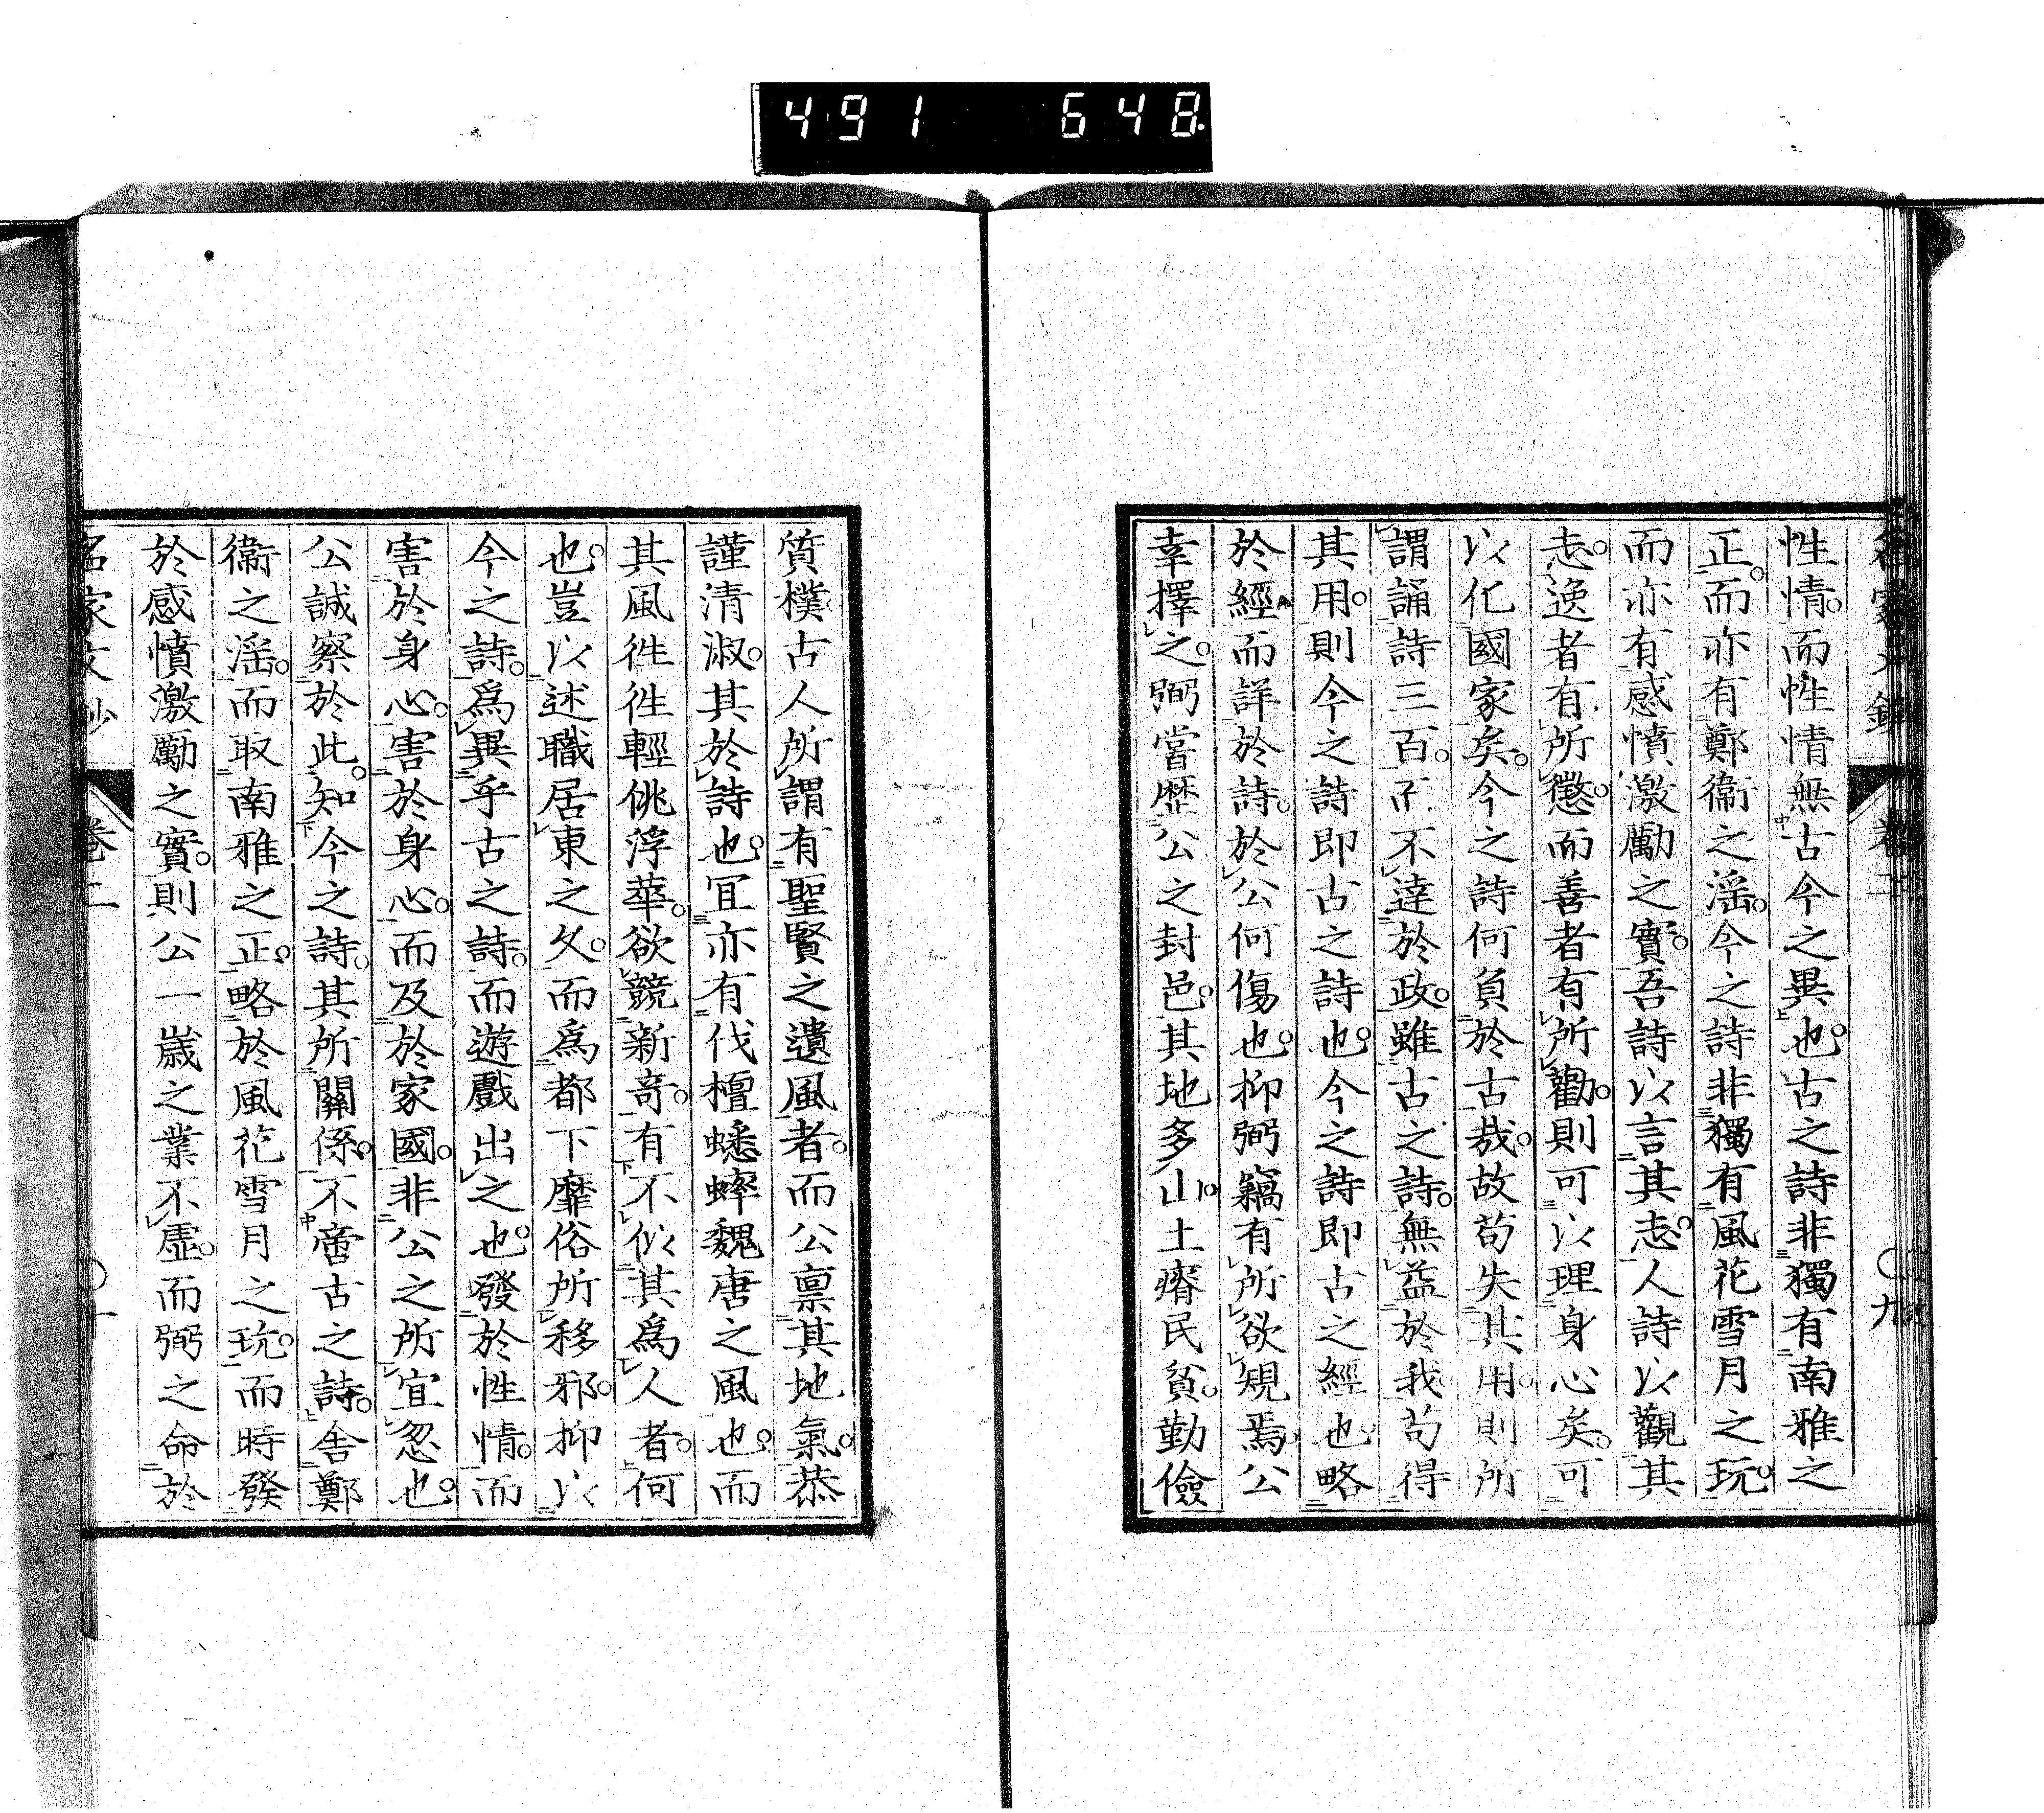 491 648
性情。而性情無古今之異也。古之詩非獨有南雅之
正。而亦有鄭衞之淫。今之詩非獨有風花雪月之玩。
而亦有感憤激勵之實。吾詩以言其志。人詩以觀其
志。逸者有所懲。而善者有所勸。則可以理身心矣。可
以化國家矣。今之詩何負於古哉。故苟失其用。則所
謂誦詩三百。而不達於政。雖古之詩。無益於我。苟得
其用。則今之詩即古之詩也。今之詩即古之經也。略
於經而詳於詩。於公何傷也。抑弼竊有所欲規焉。公
幸擇之。弼當歷公之封邑。其地多山。土瘠民貧。勤儉
質樸古人所謂有聖賢之遺風者。而公禀其地氣。恭
謹清淑。其於詩也。宜亦有伐檀蟋蟀魏唐之風也。而
其風徃徃輕佻浮華。欲競新竒。有不似其爲人者。何
也。豈以述職居東之久。而爲都下靡俗所移邪。抑以
今之詩。爲異乎古之詩。而遊戲出之也。發於性情。而
害於身心。害於身心。而及於家國。非公之所宜忽也。
公誠察於此。知今之詩。其所關係。不啻古之詩。舍鄭
衞之淫。而取南雅之正。略於風花雪月之玩。而時發
於感憤激勵之實。則公一歲之業不虛。而弼之命於
名家文鈔 卷二